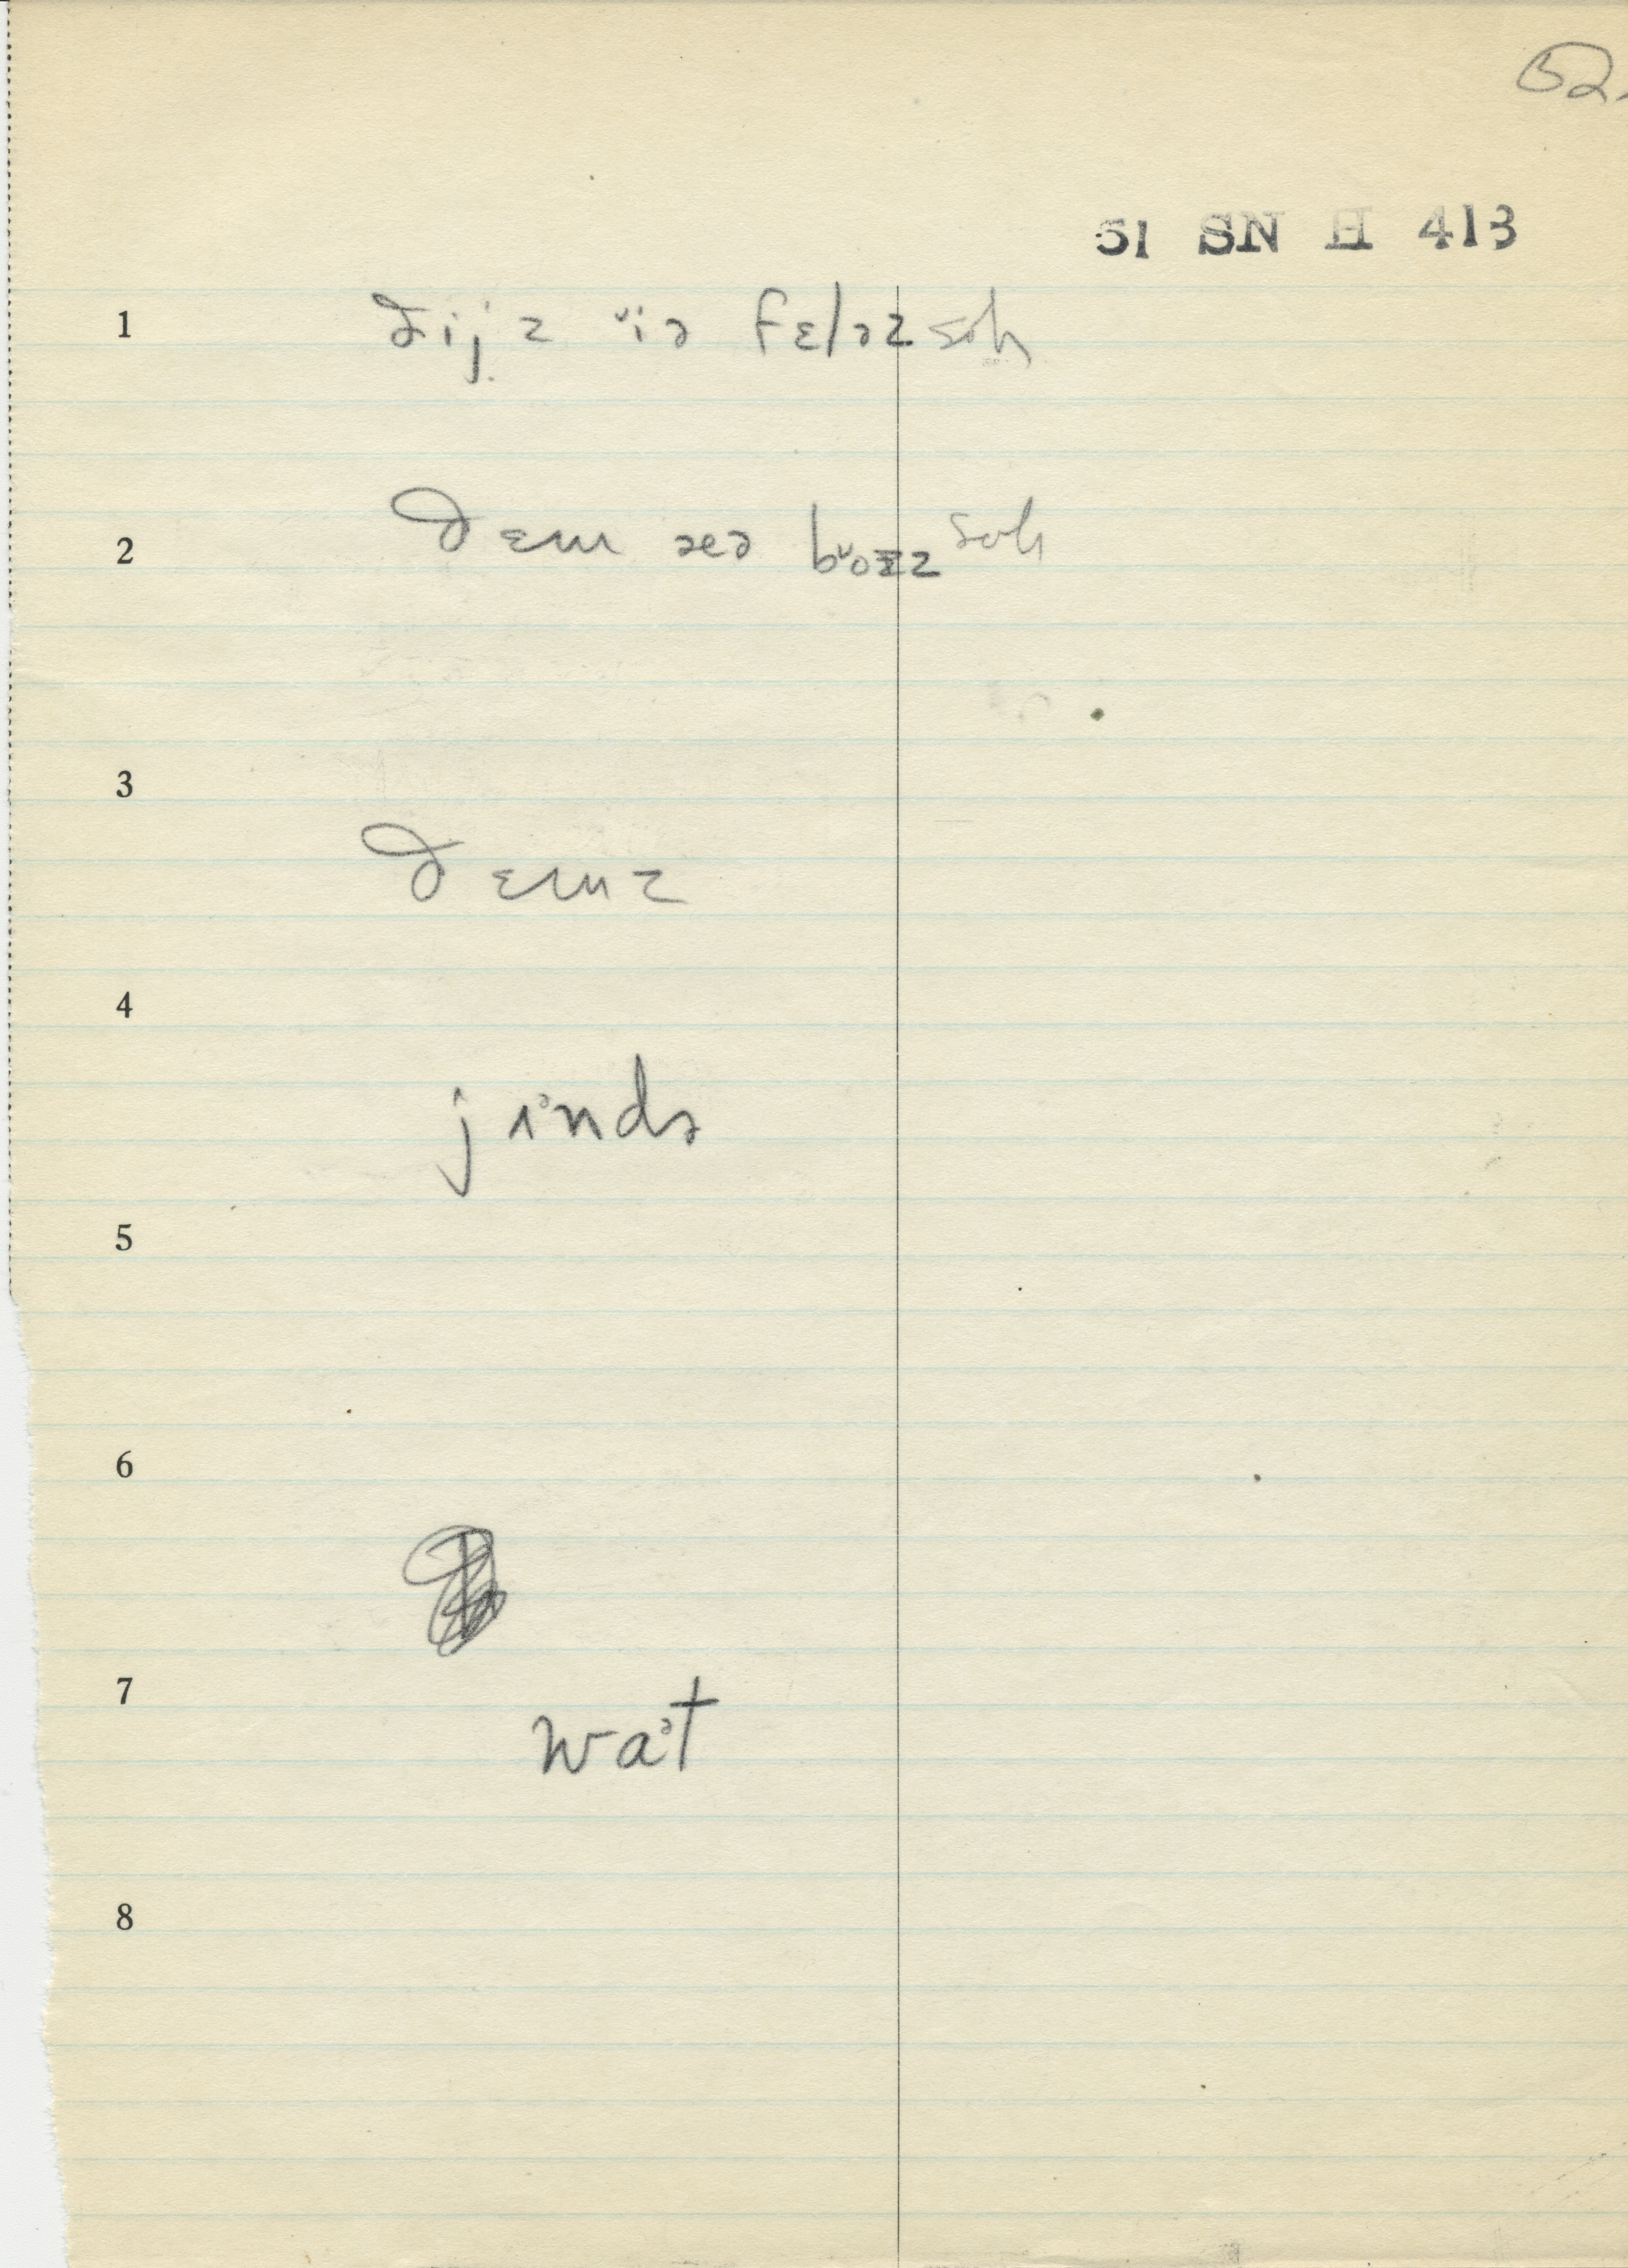 52.
51 SN H 413
1 ðijz ᵘiə fɛləz soh
2 ðɛm əeə bᵘoɪzz soh
3
ðɛmz
4
jɪᵊndə
5
6
7
waᵊt
8